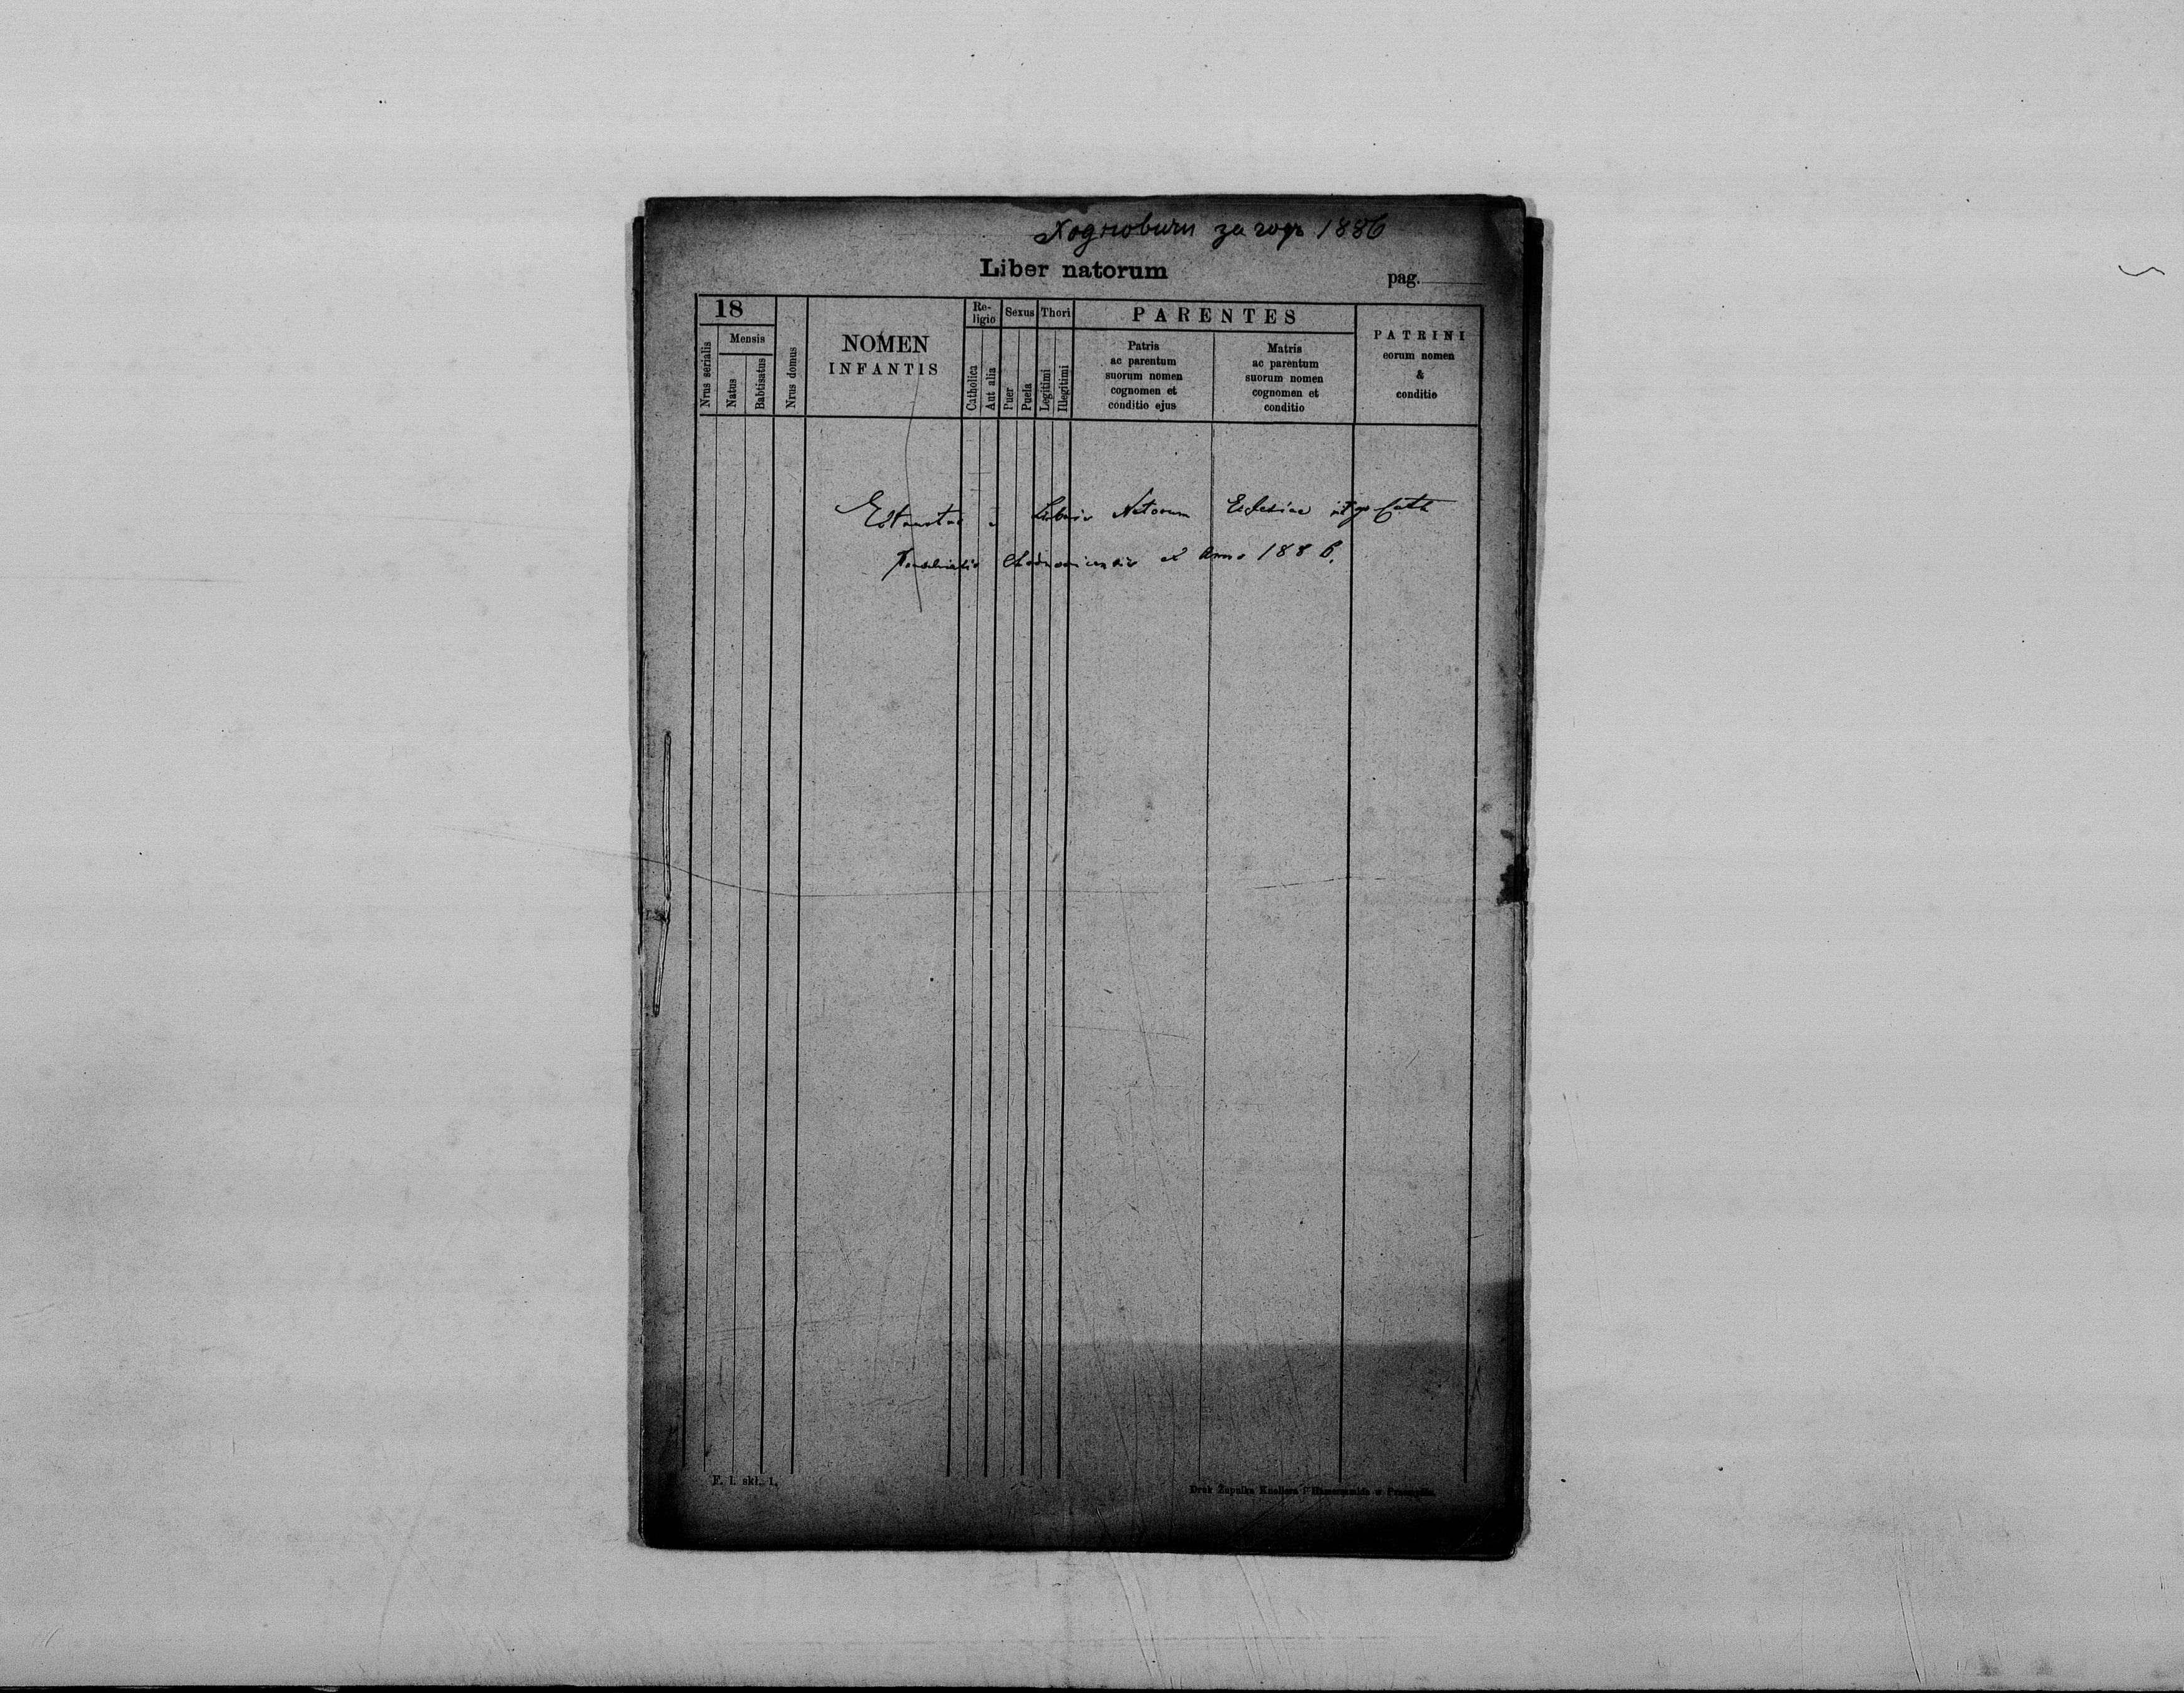 Ходновичи за годъ 1886
Liber natorum
pag.
18
Nrus serialis
Mensis
Natus
Babtisatus
Nrus domus
NOMEN
INFANTIS
Re-
ligio
Catholica
Aut alia
Sexus
Puer
Puela
Thori
Legitimi
Illegitimi
PARENTES
Patris
ac parentum
suorum nomen
cognomen et
conditio ejus
Matris
ac parentum
suorum nomen
cognomen et
conditio
PATRINI
eorum nomen
&
conditio
Libris Natorum Eclesiae
Anno 1886.
F. I. skł. 1.
Druk Żupnika Knollera i Hamerszmida w Przemyślu.